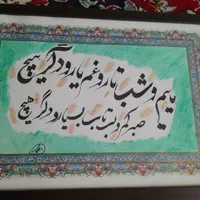 ماییم و شب تار و غم یار و دگر هیچ
صبر کم و بی‌تابی بسیار و دگر هیچ